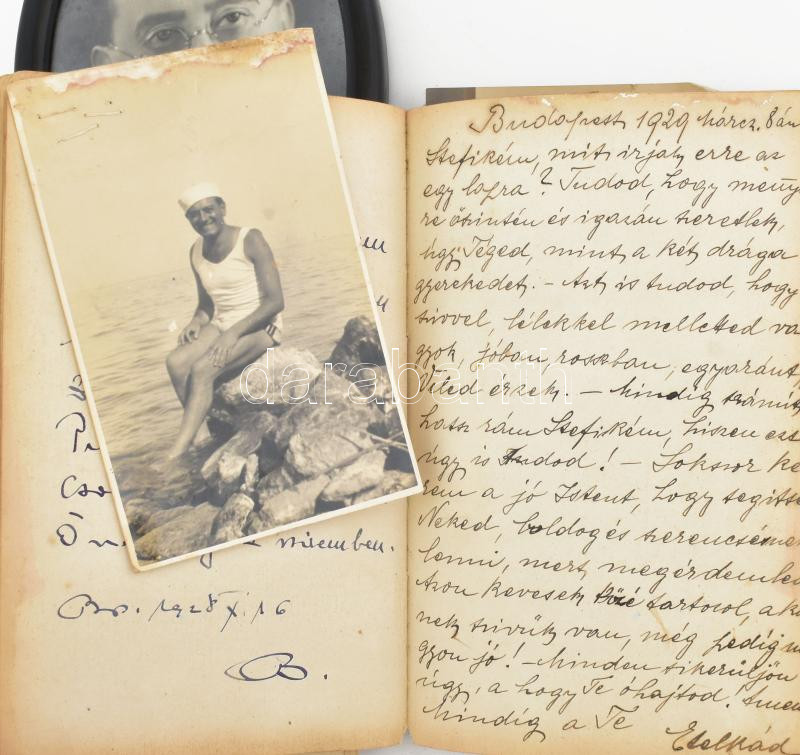 em
műemben.
Bp. 1928 X. 16
B.
Budapest, 1929 Márcz. 8án
Stefikém, mit irjak erre az
egy lapra? Tudod, hogy meny
re őszintén és igazán szeretlek,
úgy Téged, mint a két drága
gyerekedet. - Azt is tudod, hogy
szivvel, lélekkel melletted va
gyok, jóban rosszban, egyaránt,
Véled érzek. - Mindig számít
hatsz rám Stefikém, hiszen ezt
úgy is Tudod! - Sokszor ké
rem a jó Istent, hogy segitse
Neked, boldog és szerencsésnek
lenni, mert megérdemled
Azon kevesek közé tartozol, aki
nek szivük van, még pedig na
gyon jó! - Minden sikerüljön
úgy, a hogy Te óhajtod! Amen
Mindig a Te
Etelkád
darabanth